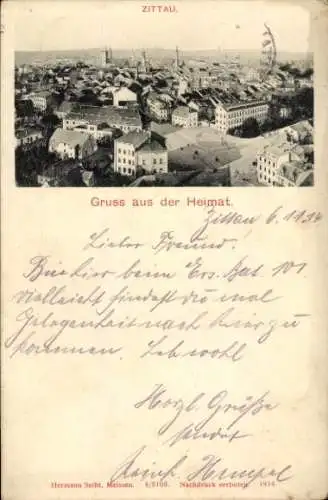 ZITTAU.
Gruss aus der Heimat.
Zittau 6.11.14
Lieber Freund!
Bin hier beim Ers. Bat. 101
vielleicht findest du mal
Gelegenheit nach hier zu
kommen. Leb wohl
Herzl. Grüße
sendet
Heinr. Hempel
Hermann Seibt, Meissen. Nachdruck verboten.